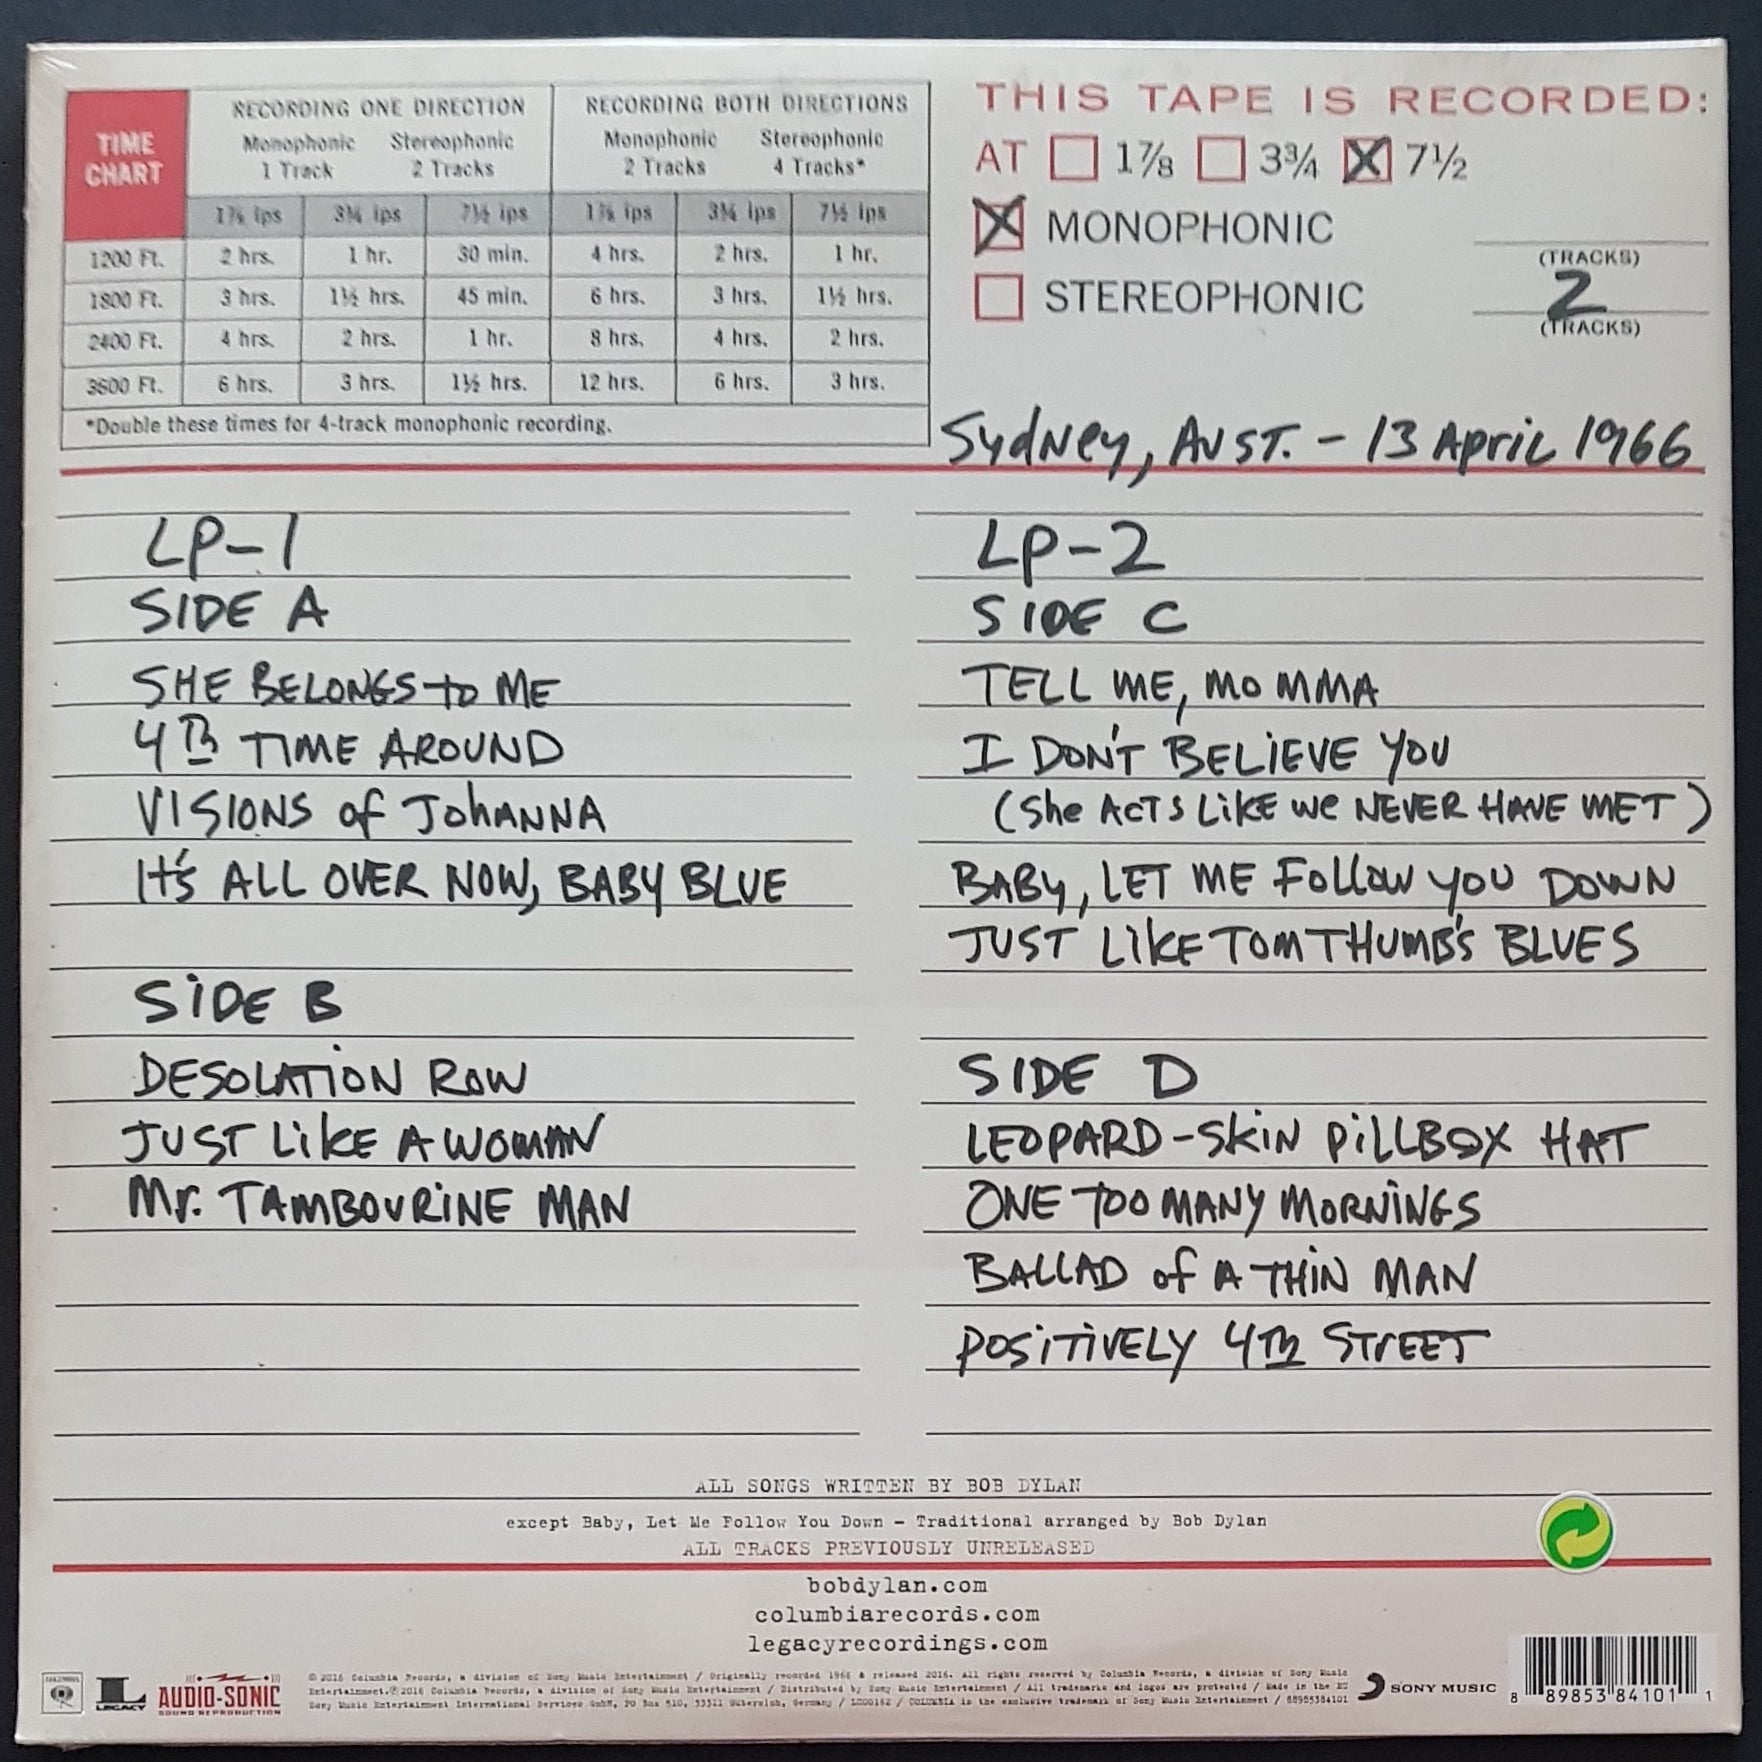 TIME CHART
RECORDING ONE DIRECTION
RECORDING BOTH DIRECTIONS
Monophonic 1 Track
Stereophonic 2 Tracks
Monophonic 2 Tracks
Stereophonic 4 Tracks*
1⅞ ips 3¾ ips 7½ ips 1⅞ ips 3¾ ips 7½ ips
1200 Ft. 2 hrs. 1 hr. 30 min. 4 hrs. 2 hrs. 1 hr.
1800 Ft. 3 hrs. 1½ hrs. 45 min. 6 hrs. 3 hrs. 1½ hrs.
2400 Ft. 4 hrs. 2 hrs. 1 hr. 8 hrs. 4 hrs. 2 hrs.
3600 Ft. 6 hrs. 3 hrs. 1½ hrs. 12 hrs. 6 hrs. 3 hrs.
*Double these times for 4-track monophonic recording.
THIS TAPE IS RECORDED:
AT 1⅞ 3¾ X 7½
X MONOPHONIC
(TRACKS)
STEREOPHONIC 2
(TRACKS)
Sydney, AUST. - 13 April 1966
LP-1
SIDE A
SHE BELONGS to ME
4TH TIME AROUND
VISIONS of JOhANNA
It's ALL OVER NOW, BABY BLUE
SiDE B
DESOLATION ROW
JUST LiKE A WOMAN
Mr. TAMBOURiNE MAN
LP-2
SIDE C
TELL ME, MOMMA
I DON'T BELiEVE YOU
(She ACTS LiKE We NEVER HAVE MET)
BABy, LET ME FOLLOW yOU DOWN
JUST LiKE TOM THUMB'S BLUES
SIDE D
LEOPARD-SKiN PiLLBOX HAT
ONE TOO MANY MORNiNGS
BALLAD of A THiN MAN
POSiTiVELY 4TH STrEET
ALL SONGS WRITTEN BY BOB DYLAN
except Baby, Let Me Follow You Down - Traditional arranged by Bob Dylan
ALL TRACKS PREVIOUSLY UNRELEASED
bobdylan.com
columbiarecords.com
legacyrecordings.com
COLUMBIA
L
LEGACY
AUDIO-SONIC
SOUND REPRODUCTION
© 2016 Columbia Records, a division of Sony Music Entertainment / Originally recorded 1966 & released 2016. All rights reserved by Columbia Records, a division of Sony Music
Entertainment. ℗ 2016 Columbia Records, a division of Sony Music Entertainment / Distributed by Sony Music Entertainment / All trademarks and logos are protected / Made in the EU
Sony Music Entertainment International Services GmbH, PO Box 510, 33311 Gütersloh, Germany / COLUMBIA is the exclusive trademark of Sony Music Entertainment / 88985384101
SONY MUSIC
8 89853 84101 1